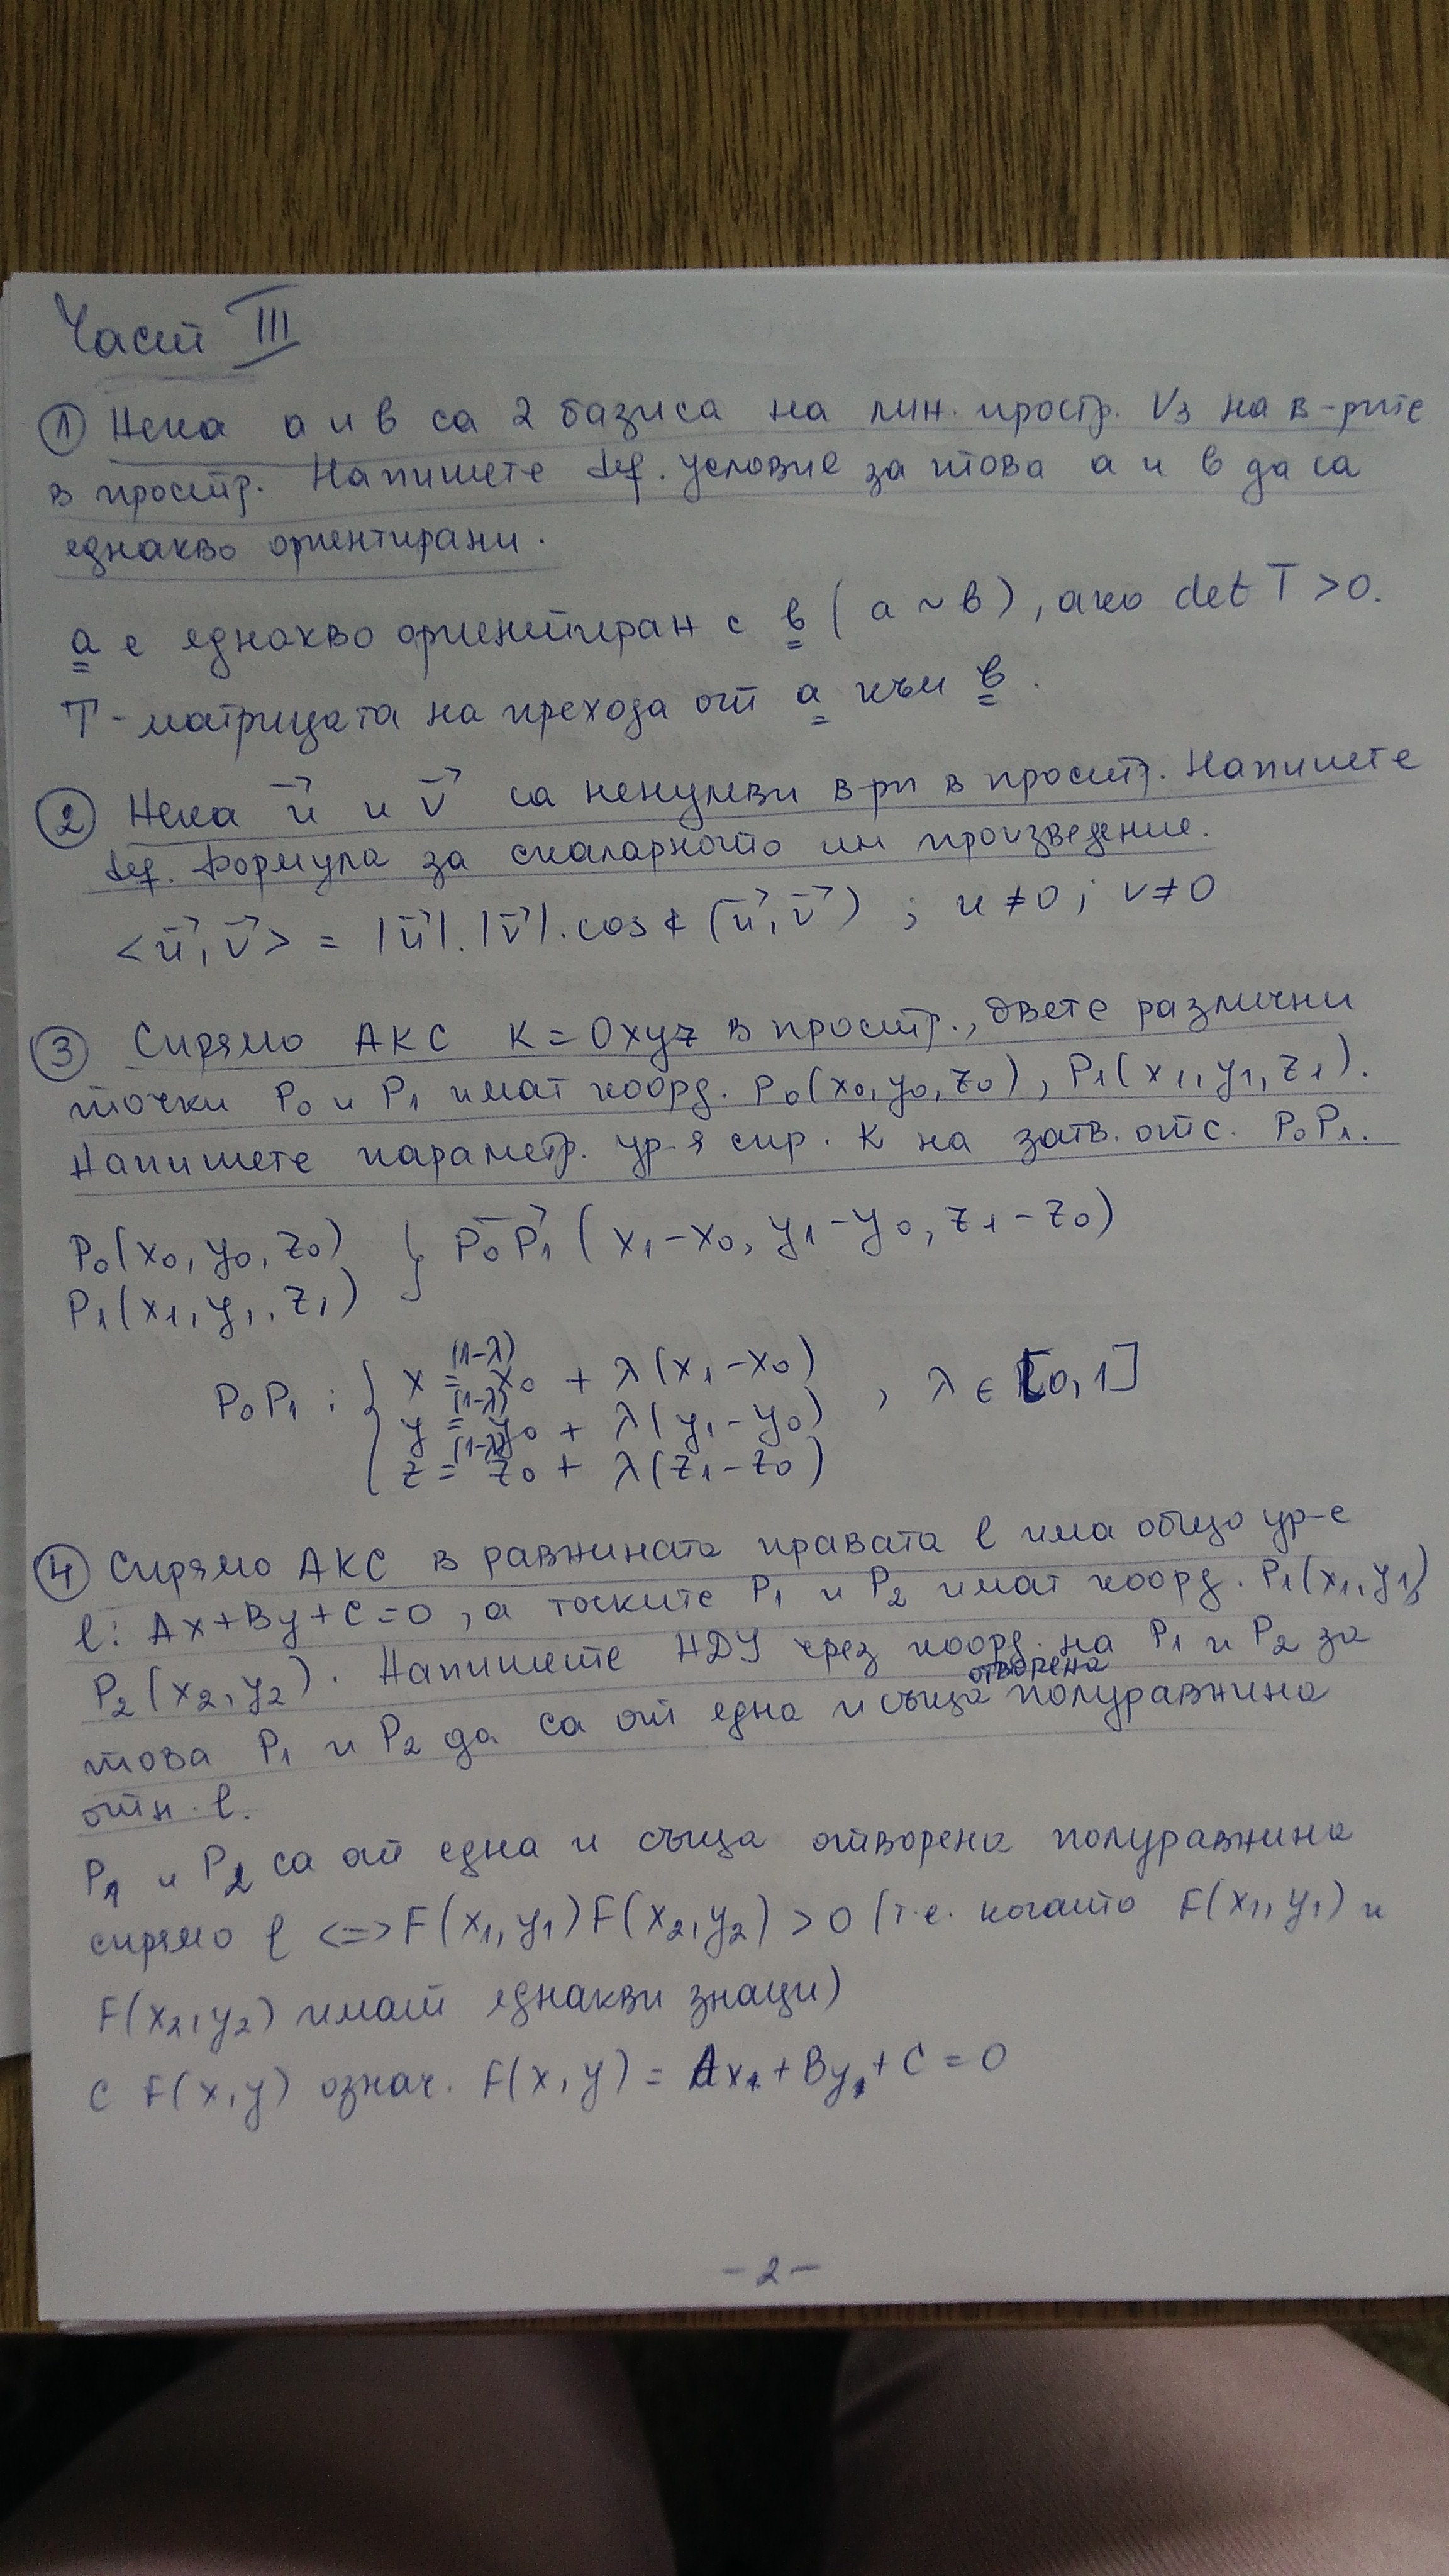 Част III
① Нека a и b са 2 базиса на лин. простр. V3 на в-рите
в простр. Напишете def. условие за това a и b да са
еднакво ориентирани.
a е еднакво ориентиран с b (a ~ b), ако det T > 0.
T - матрицата на прехода от a към b.
② Нека u⃗ и v⃗ са ненулеви в-ри в простр. Напишете
def. формула за скаларното им произведение.
<u⃗, v⃗> = |u⃗|.|v⃗|.cos∢(u⃗, v⃗) ; u ≠ 0 ; v ≠ 0
③ Спрямо АКС K = Oxyz в простр., двете различни
точки P0 и P1 имат коорд. P0(x0, y0, z0), P1(x1, y1, z1).
Напишете параметр. ур-я спр. K на затв. отс. P0P1.
P0(x0, y0, z0) } P0P1⃗ (x1-x0, y1-y0, z1-z0)
P1(x1, y1, z1)
P0P1 : { x = (1-λ) x0 + λ(x1-x0) , λ ∈ [0,1]
y = (1-λ) y0 + λ(y1-y0)
z = (1-λ) z0 + λ(z1-z0)
④ Спрямо АКС в равнината правата l има общо ур-е
l: Ax+By+C=0, а точките P1 и P2 имат коорд. P1(x1, y1)
P2(x2, y2). Напишете НДУ чрез коорд. на P1 и P2 за
това P1 и P2 да са от една и съща отворена полуравнина
отн. l.
P1 и P2 са от една и съща отворена полуравнина
спрямо l <=> F(x1, y1)F(x2, y2) > 0 (т.е. когато F(x1, y1) и
F(x2, y2) имат еднакви знаци)
С F(x, y) означ. F(x, y) = Ax1 + By1 + C = 0
- 2 -